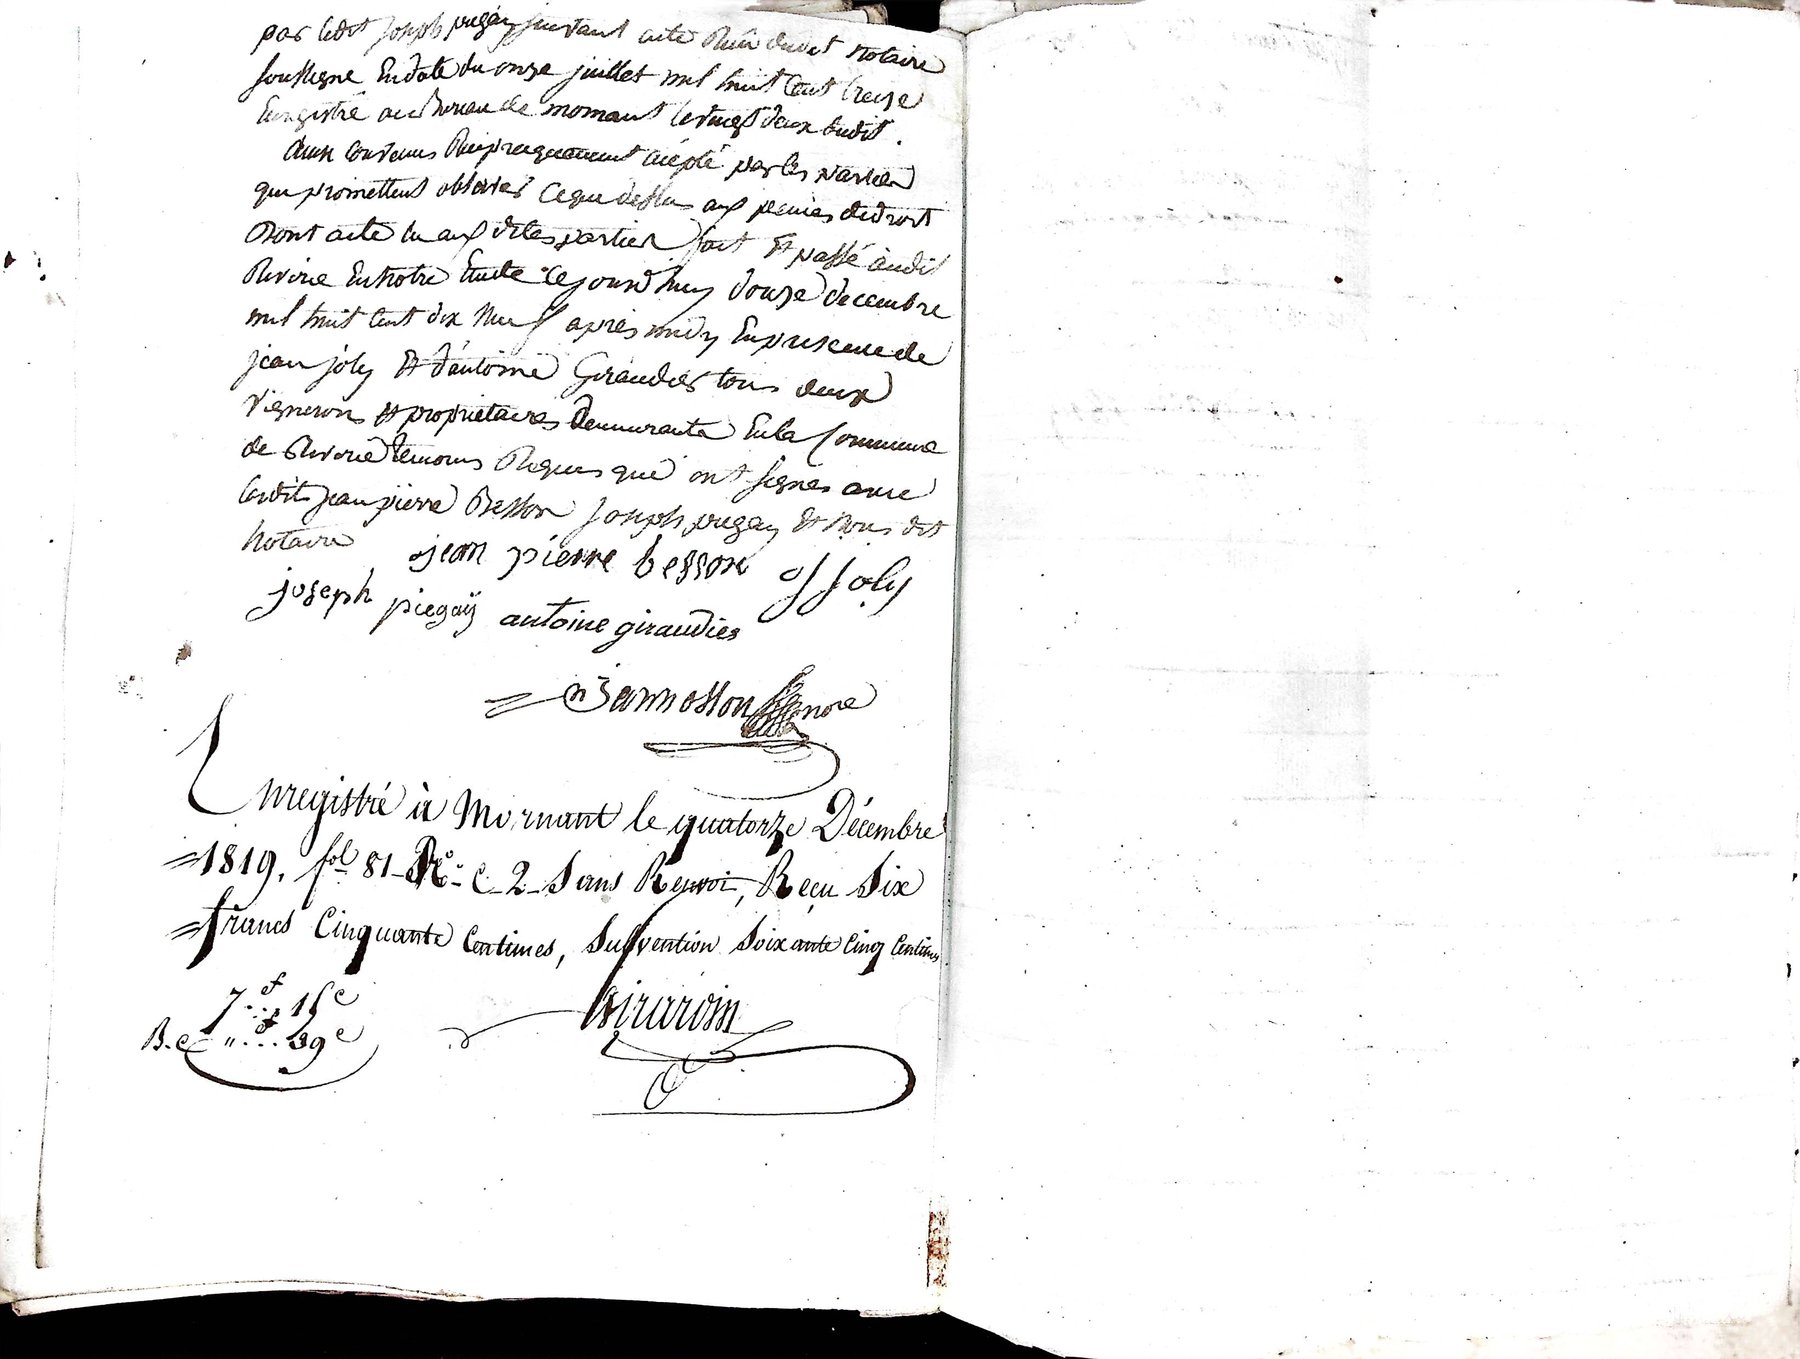 par ledit joseph piegay suivant acte Recu dudit notaire
soussigne En date du onze juillet mil huit Cent treize
Enregistré au Bureau de mornant le vingt deux dudit.
Ainsi Convenus Reciproquement accepté par les parties
qui promettent observer Ce que dessus aux peines de droit
Dont acte lu aux dites parties fait Et passé audit
Riverie En notre Etude Cejourd'huy douze decembre
mil huit Cent dix Neuf après midy En presence de
jean joly Et d'antoine Giraudier tous deux
vignerons Et proprietaires demeurants En la Commune
de Riverie temoins Requis qui ont signés avec
lesdits jean pierre Besson joseph piegay Et Nous dit
Notaire
jean pierre besson J Joly
joseph piegaÿ antoine giraudier
Jannosson nore
Enregistré à Mornant le quatorze Décembre
1819. fol 81 Ro. C 2 Sans Renvoi, Reçu Six
francs Cinquante Centimes, Subvention Soixante Cinq Centimes
7f...15c
B.C "...39c
Girardin